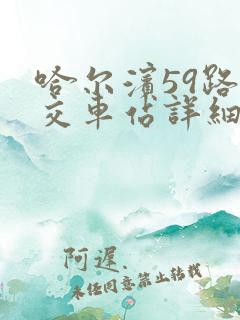 哈尔滨59路
交车佔詳細
阿遲.
未任同意禁止转载